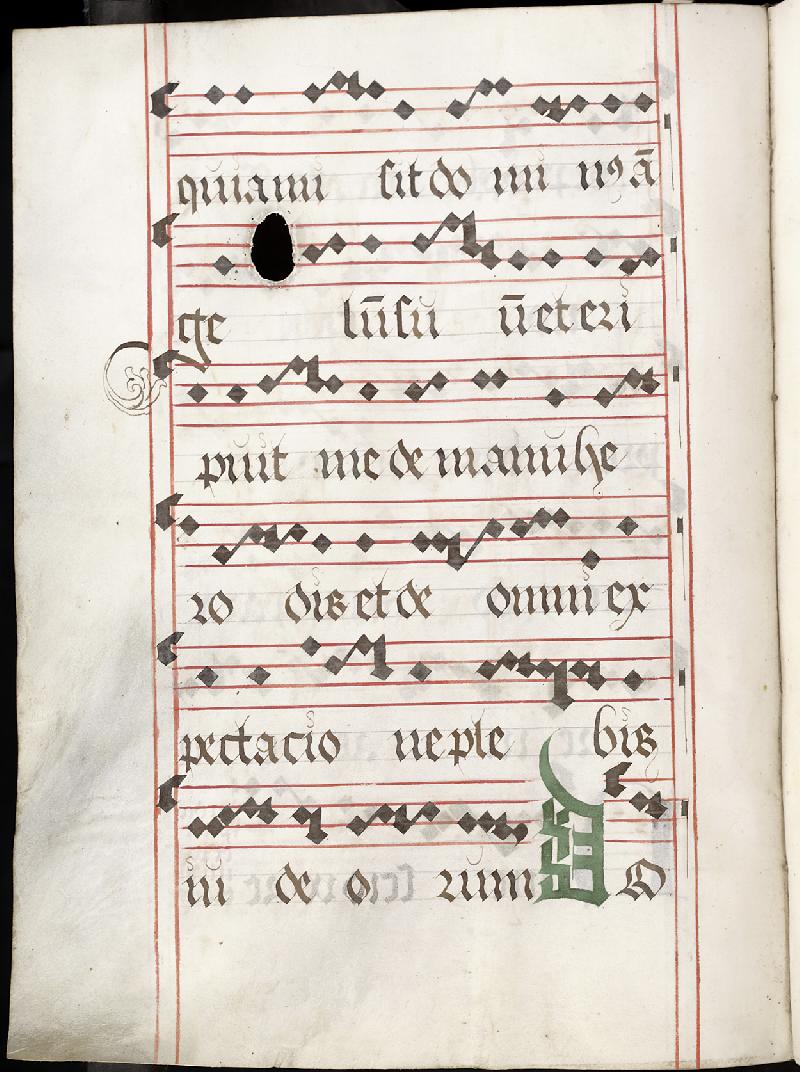 quiaM sit do mi n⁹ ā
ge lū suū et eri
puit me de manu he
ro dis et de omni ex
pectacio ne ple bis
iu de o rum D O